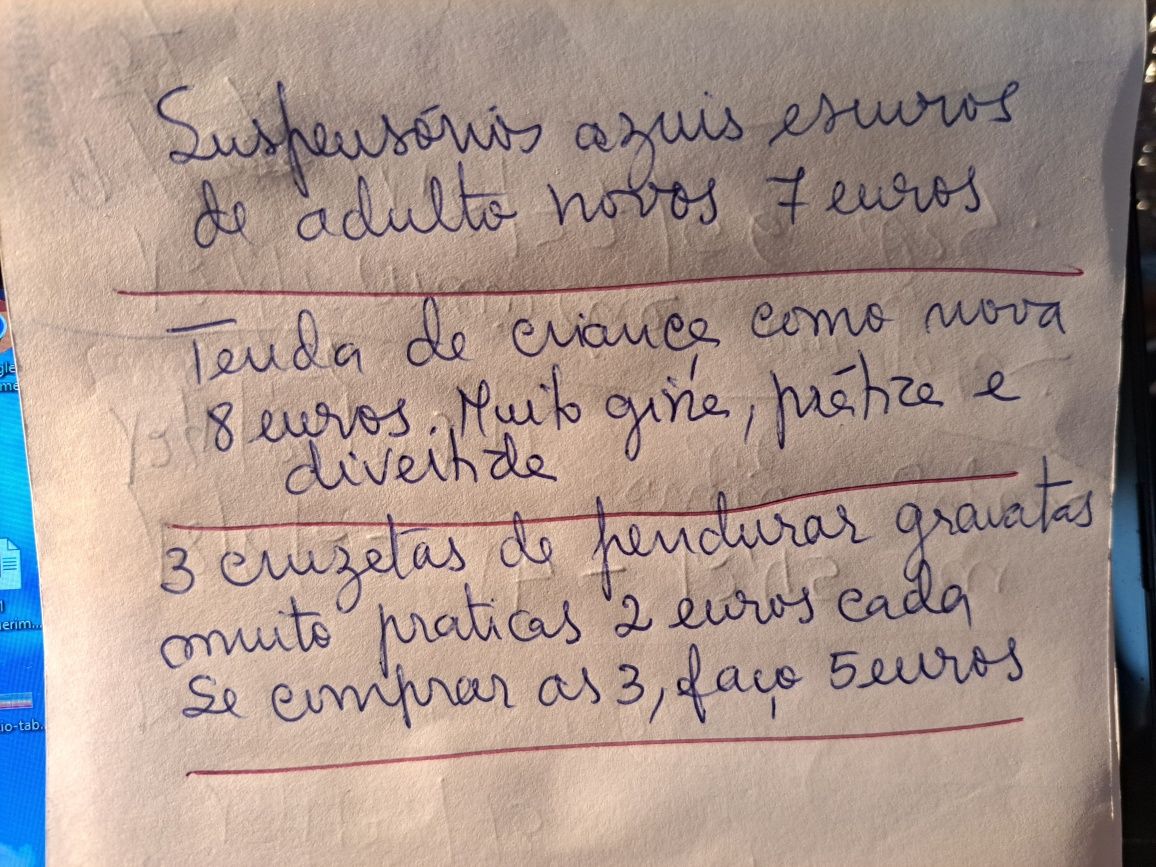 Suspensórios azuis escuros
de adulto novos 7 euros
Tenda de criança como nova
8 euros. Muito gira, prática e
divertida
3 cruzetas de pendurar gravatas
muito praticas 2 euros cada
Se comprar as 3, faço 5 euros